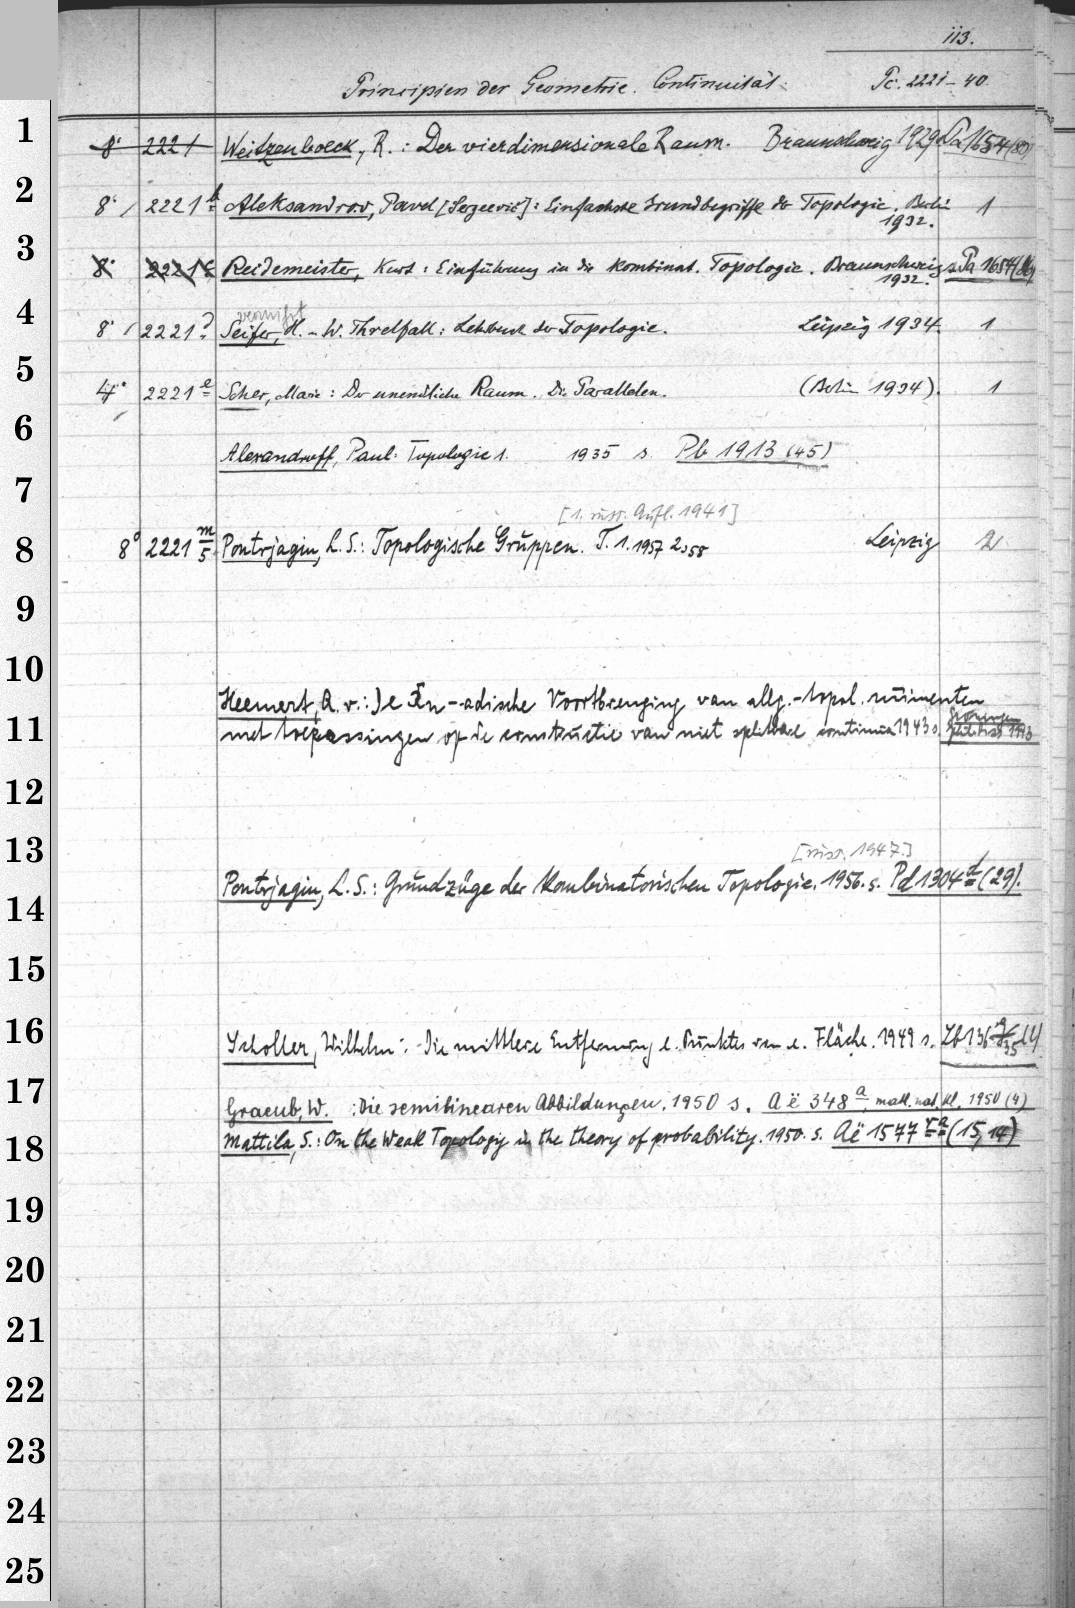 113.
Principien der Geometrie. Continuität. Pc. 2221-40.
1
8° 2221 Weitzenboeck, R.: Der vierdimensionale Raum. Braunschweig 1929 s. Pa 1654 (80)
2
8° 2221 b Aleksandrov, Pavel [Sergeevič]: Einfachste Grundbegriffe der Topologie. Berlin 1
1932.
3
8° 2221 c Reidemeister, Kurt: Einführung in die kombinat. Topologie. Braunschweig s. Pa 1654
1932.
4
vermißt
8° 2221 Seifer, H. - W. Threlfall: Lehrbuch der Topologie. Leipzig 1934. 1
5
4° 2221 e Scher, Marie: Der unendliche Raum. Die Parallelen. (Berlin 1934). 1
6
Alexandroff, Paul: Topologie 1. 1935 s. Pb 1913 (45)
7
[1. russ. Aufl. 1941]
8
8° 2221 m/5 Pontrjagin, L. S.: Topologische Gruppen. T. 1. 1957 2. 58 Leipzig 2
9
10
Heemert, A. v.: De -adische Voortbrenging van allg.-topol. ruimenten
11
met toepassingen op de constructie van niet splitbare continua 1943 s.
12
13
[russ. 1947.]
Pontrjagin, L. S.: Grundzüge der kombinatorischen Topologie. 1956. s. Pd 1304 d (29).
14
15
16
Scholler, Wilhelm: Die mittlere Entfernung e. Punktes von e. Fläche. 1949 s. Zb 136
17
Graeub, W. : Die semilinearen Abbildungen. 1950 s. Aë 348 a, math. nat. Kl. 1950 (4)
18
Mattila, S.: On the Weak Topology in the theory of probability. 1950. s. Aë 1577 (15, 14)
19
20
21
22
23
24
25